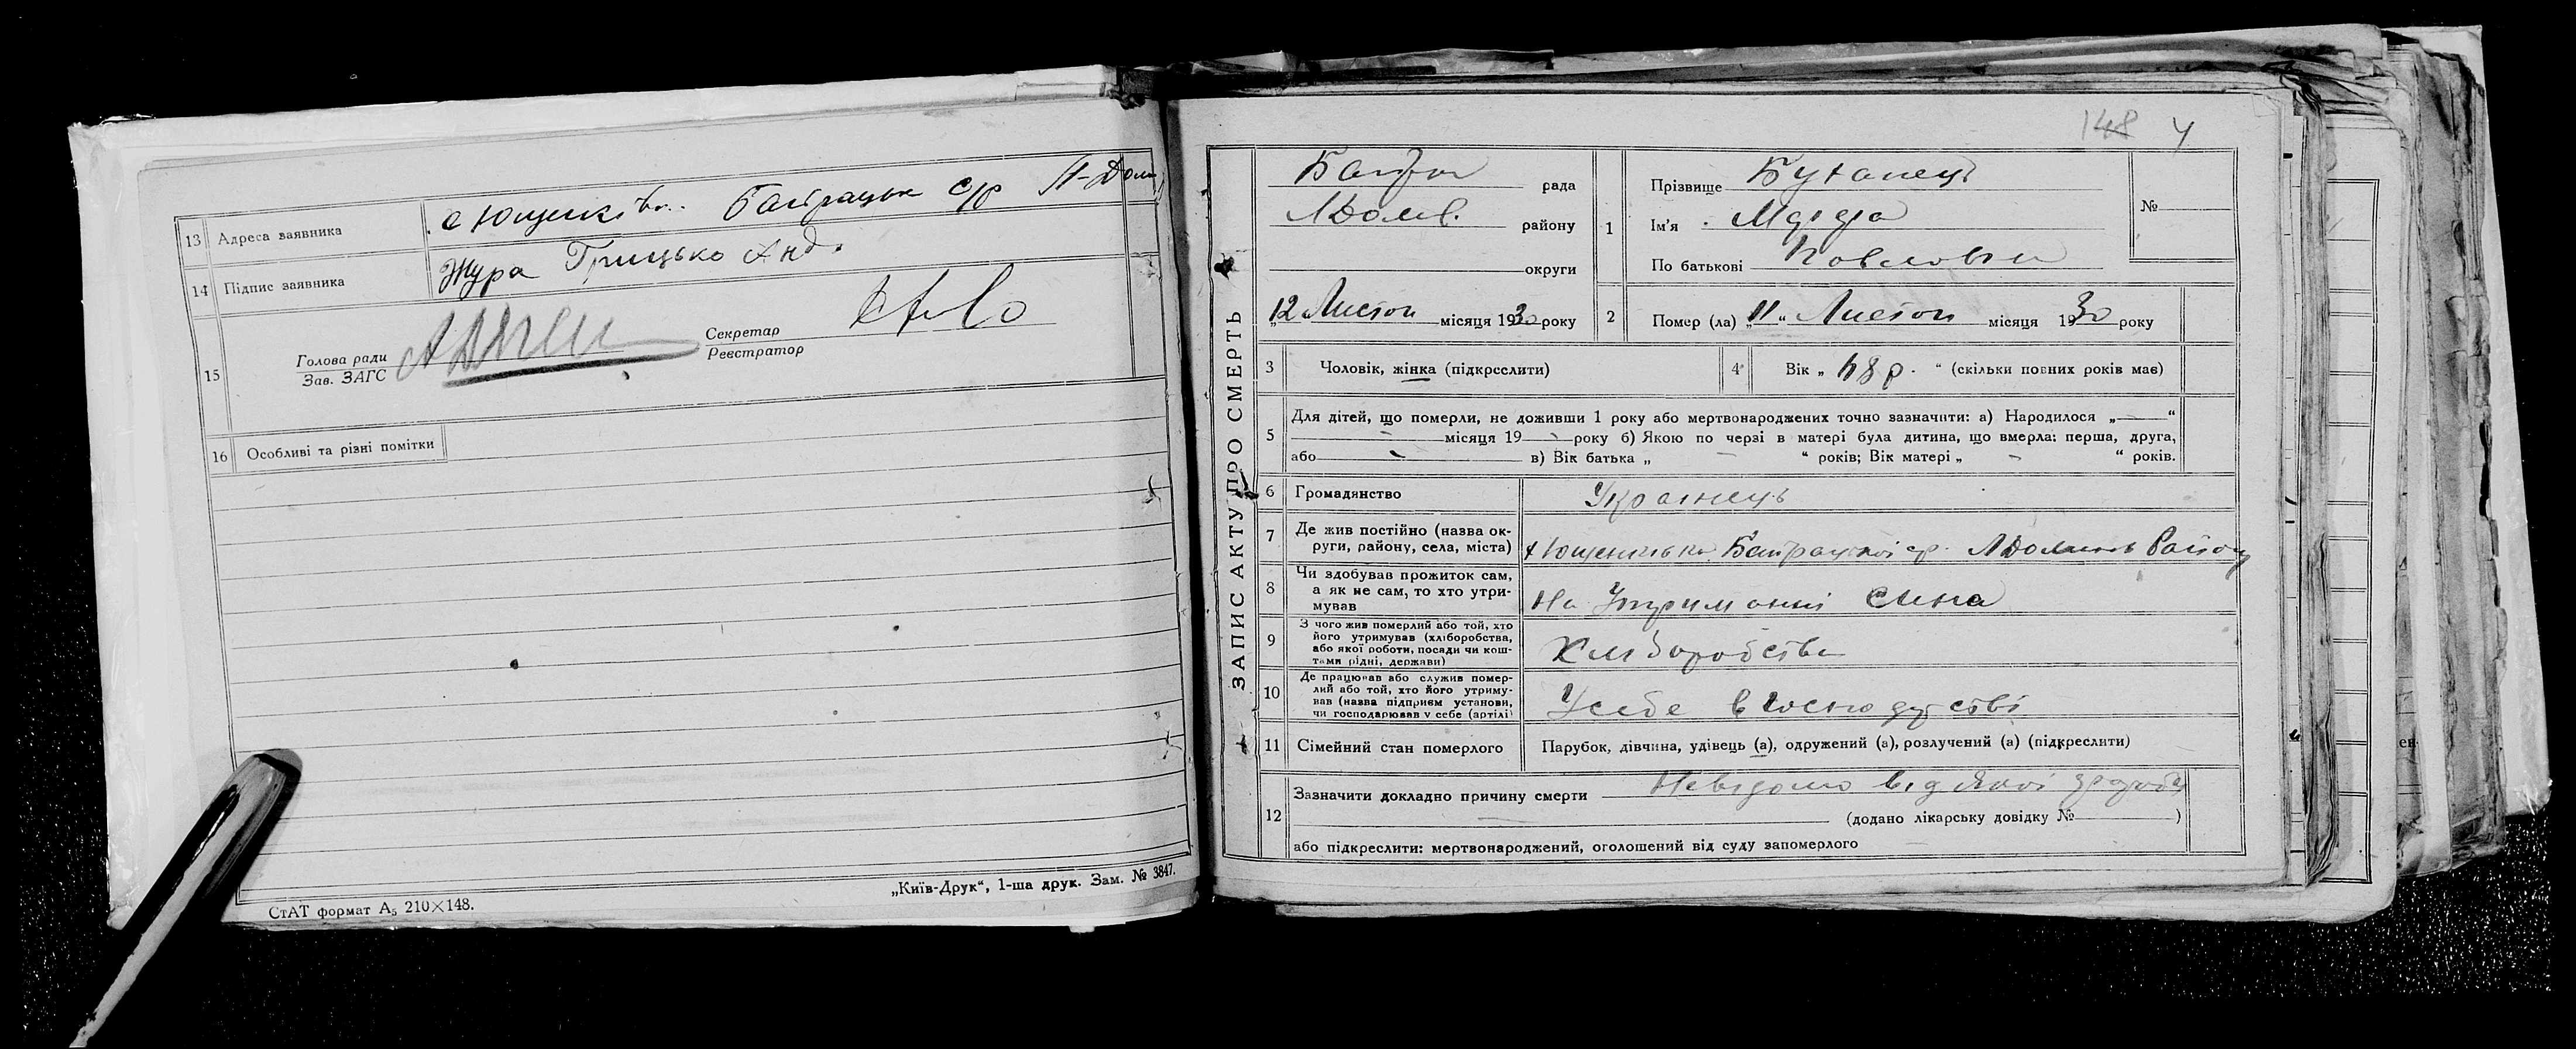 13 Адреса заявника с Ющенків.. Байрацьк с/р Л-Доли
14 Підпис заявника Жура Грицько Анд.
15 Голова ради Секретар
Зав. ЗАГС Реєстратор
16 Особливі та різні помітки
„Київ-Друк“, 1-ша друк. Зам. № 3847.
СтАТ формат А5 210×148.
148 4
ЗАПИС АКТУ ПРО СМЕРТЬ
рада
району
округи
„12 Листоп місяця 1930 року
1 Прізвище
Ім'я
По батькові Павловна
№
2 Помер (ла) „11“ Листоп місяця 1930 року
3 Чоловік, жінка (підкреслити)
4 Вік „ р. “ (скільки повних років має)
5 Для дітей, що померли, не доживши 1 року або мертвонароджених точно зазначити: а) Народилося „ “
місяця 19 року б) Якою по черзі в матері була дитина, що вмерла: перша, друга,
або в) Вік батька „ “ років; Вік матері „ “ років.
6 Громадянство Українець
7 Де жив постійно (назва ок-
руги, району, села, міста) Байрацкої ср.
8 Чи здобував прожиток сам,
а як не сам, то хто утри-
мував На Утриманні сина
9 З чого жив померлий або той, хто
його утримував (хліборобства,
або якої роботи, посади чи кош-
тами рідні, держави) Хліборобства
10 Де працював або служив помер-
лий або той, хто його утриму-
вав (назва підприєм установи,
чи господарював у себе (артілі) Усебе в господарстві
11 Сімейний стан померлого Парубок, дівчина, удівець (а), одружений (а), розлучений (а) (підкреслити)
12 Зазначити докладно причину смерти Невідомо від якої
(додано лікарську довідку № )
або підкреслити: мертвонароджений, оголошений від суду запомерлого